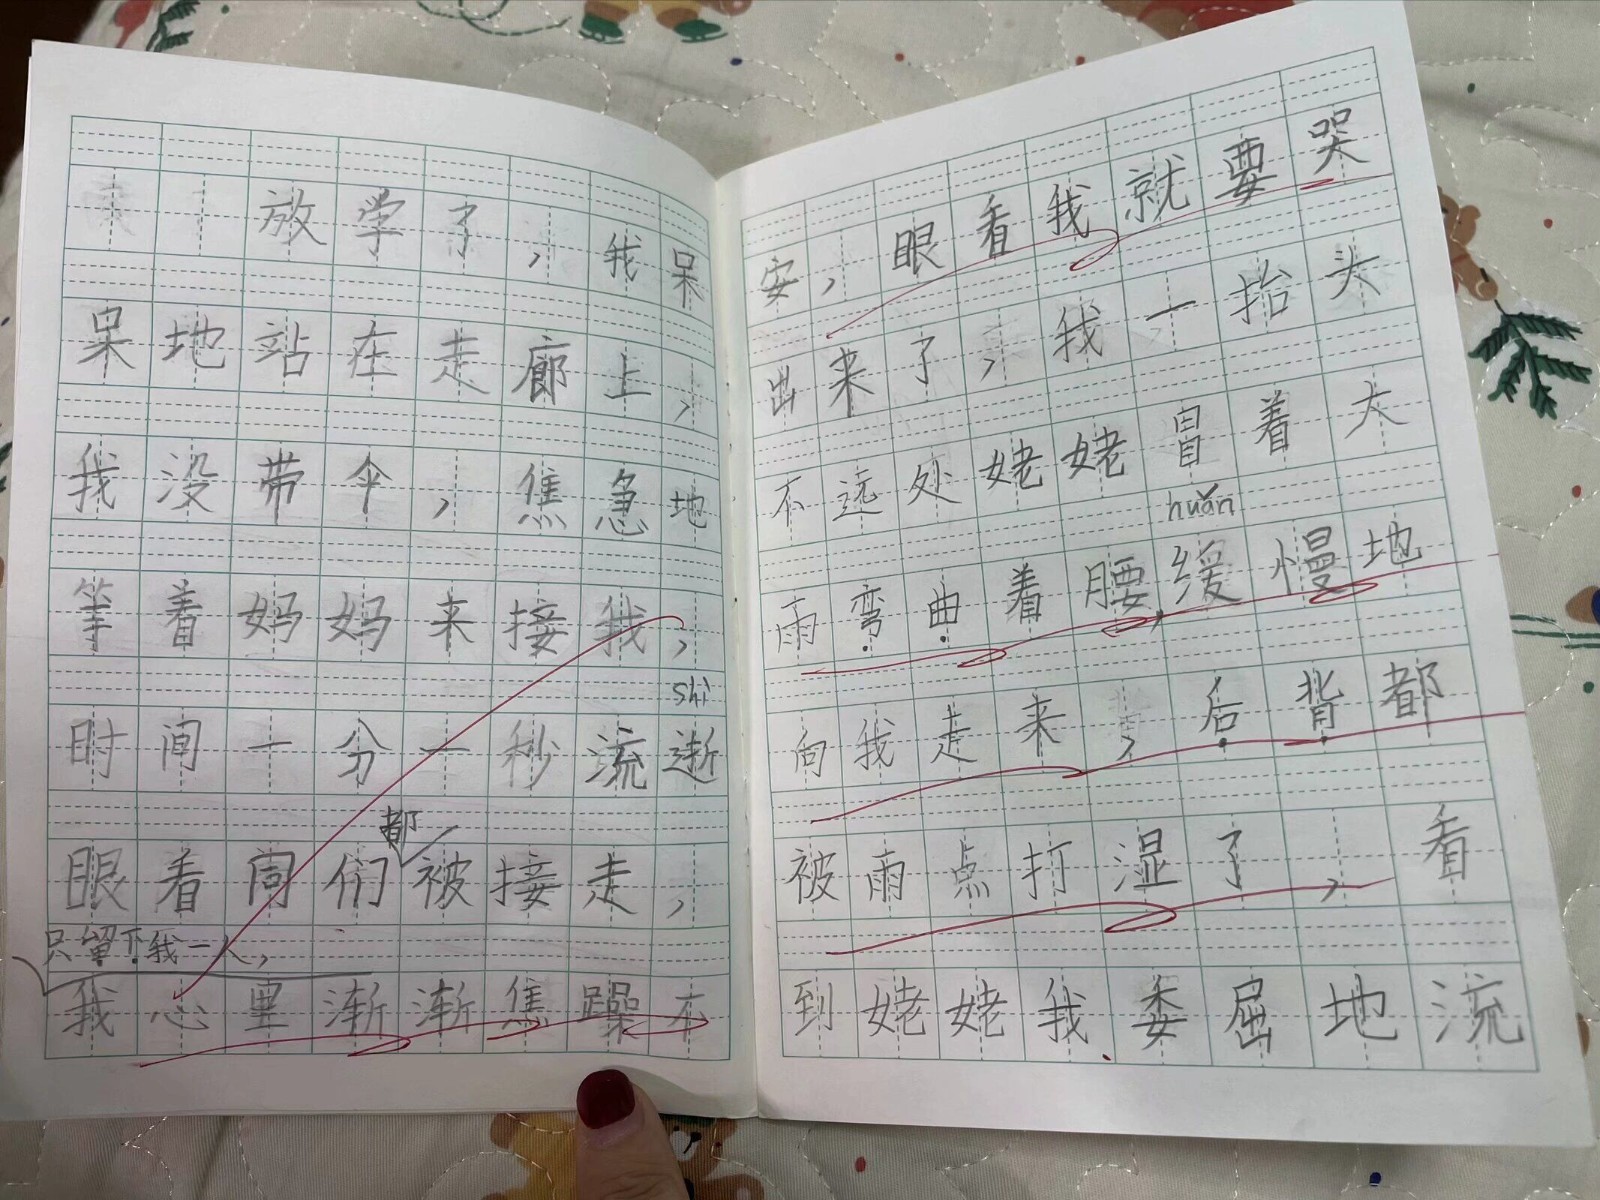 放学了，我呆
呆地站在走廊上，
我没带伞，焦急地
等着妈妈来接我，
shì
时间一分一秒流逝
都
眼看同们被接走，
只留下我一人，
我心里渐渐焦躁不
安，眼看我就要哭
出来了，我一抬头
不远处姥姥冒着大
huǎn
雨弯曲着腰缓慢地
向我走来，后背都
被雨点打湿了，看
到姥姥我委屈地流